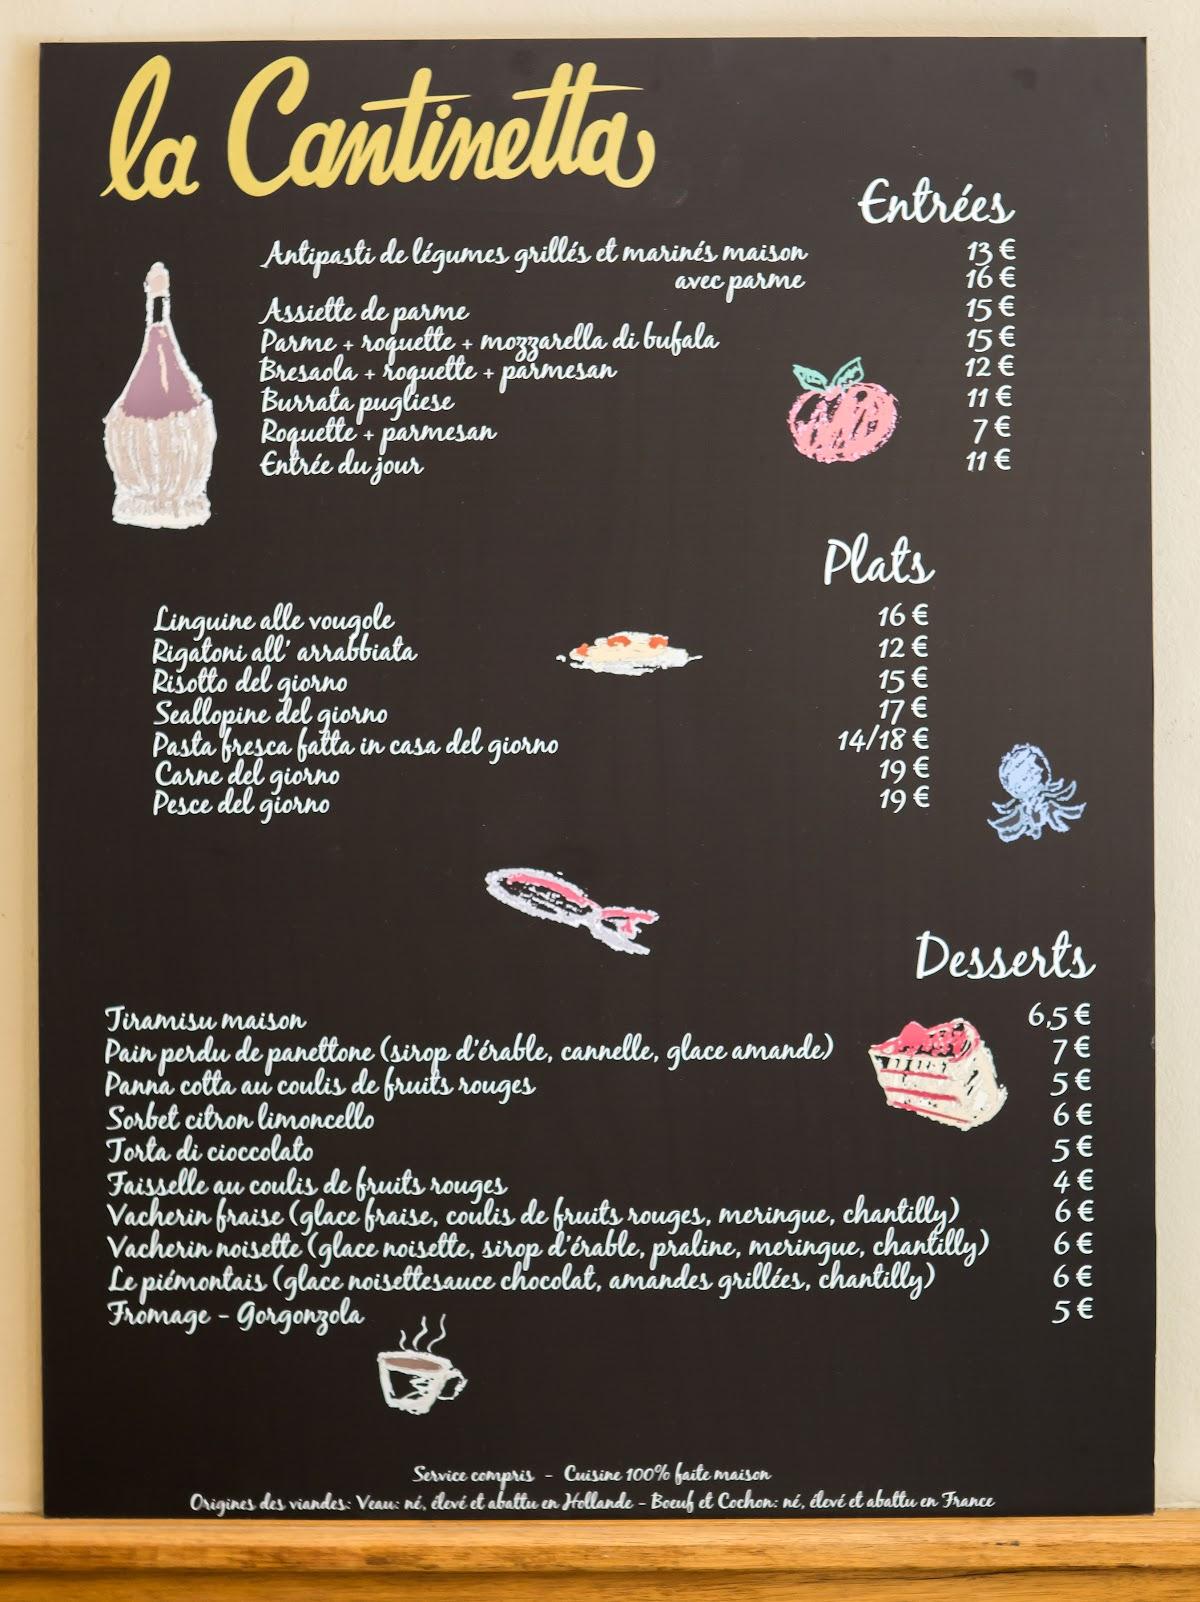 la Cantinetta
Entrées
Antipasti de légumes grillés et marinés maison 13 €
avec parme 16 €
Assiette de parme 15 €
Parme + roquette + mozzarella di bufala 15 €
Bresaola + roquette + parmesan 12 €
Burrata pugliese 11 €
Roquette + parmesan 7 €
Entrée du jour 11 €
Plats
Linguine alle vougole 16 €
Rigatoni all' arrabbiata 12 €
Risotto del giorno 15 €
Seallopine del giorno 17 €
Pasta fresca fatta in casa del giorno 14/18 €
Carne del giorno 19 €
Pesce del giorno 19 €
Desserts
Tiramisu maison 6,5 €
Pain perdu de panettone (sirop d'érable, cannelle, glace amande) 7 €
Panna cotta au coulis de fruits rouges 5 €
Sorbet citron limoncello 6 €
Torta di cioccolato 5 €
Faisselle au coulis de fruits rouges 4 €
Vacherin fraise (glace fraise, coulis de fruits rouges, meringue, chantilly) 6 €
Vacherin noisette (glace noisette, sirop d'érable, praline, meringue, chantilly) 6 €
Le piémontais (glace noisettesauce chocolat, amandes grillées, chantilly) 6 €
Fromage - Gorgonzola 5 €
Service compris - Cuisine 100% faite maison
Origines des viandes: Veau: né, élevé et abattu en Hollande - Boeuf et Cochon: né, élevé et abattu en France